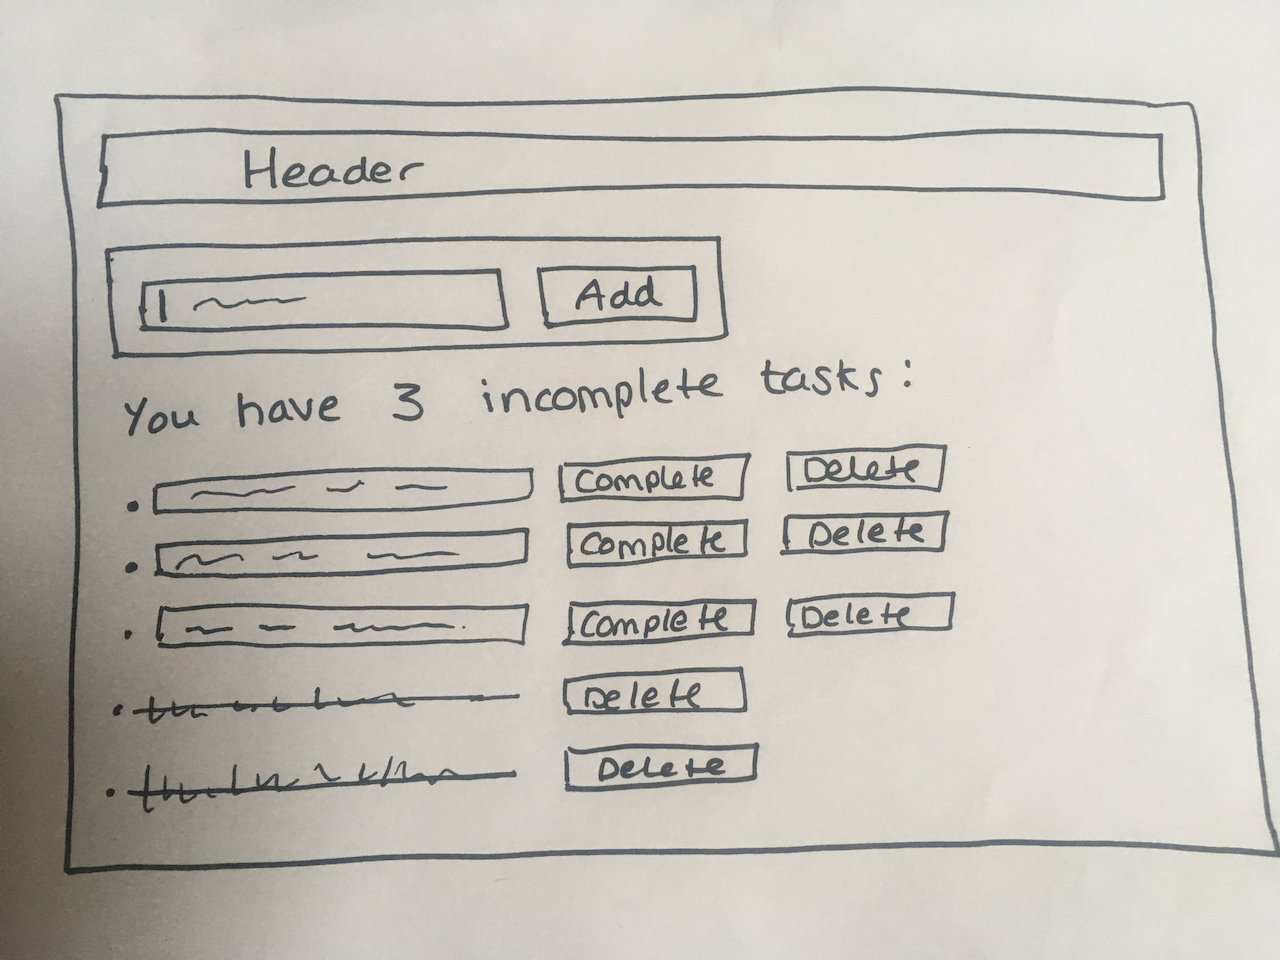 Header
Add
You have 3 incomplete tasks:
Complete Delete
Complete Delete
Complete Delete
Delete
Delete